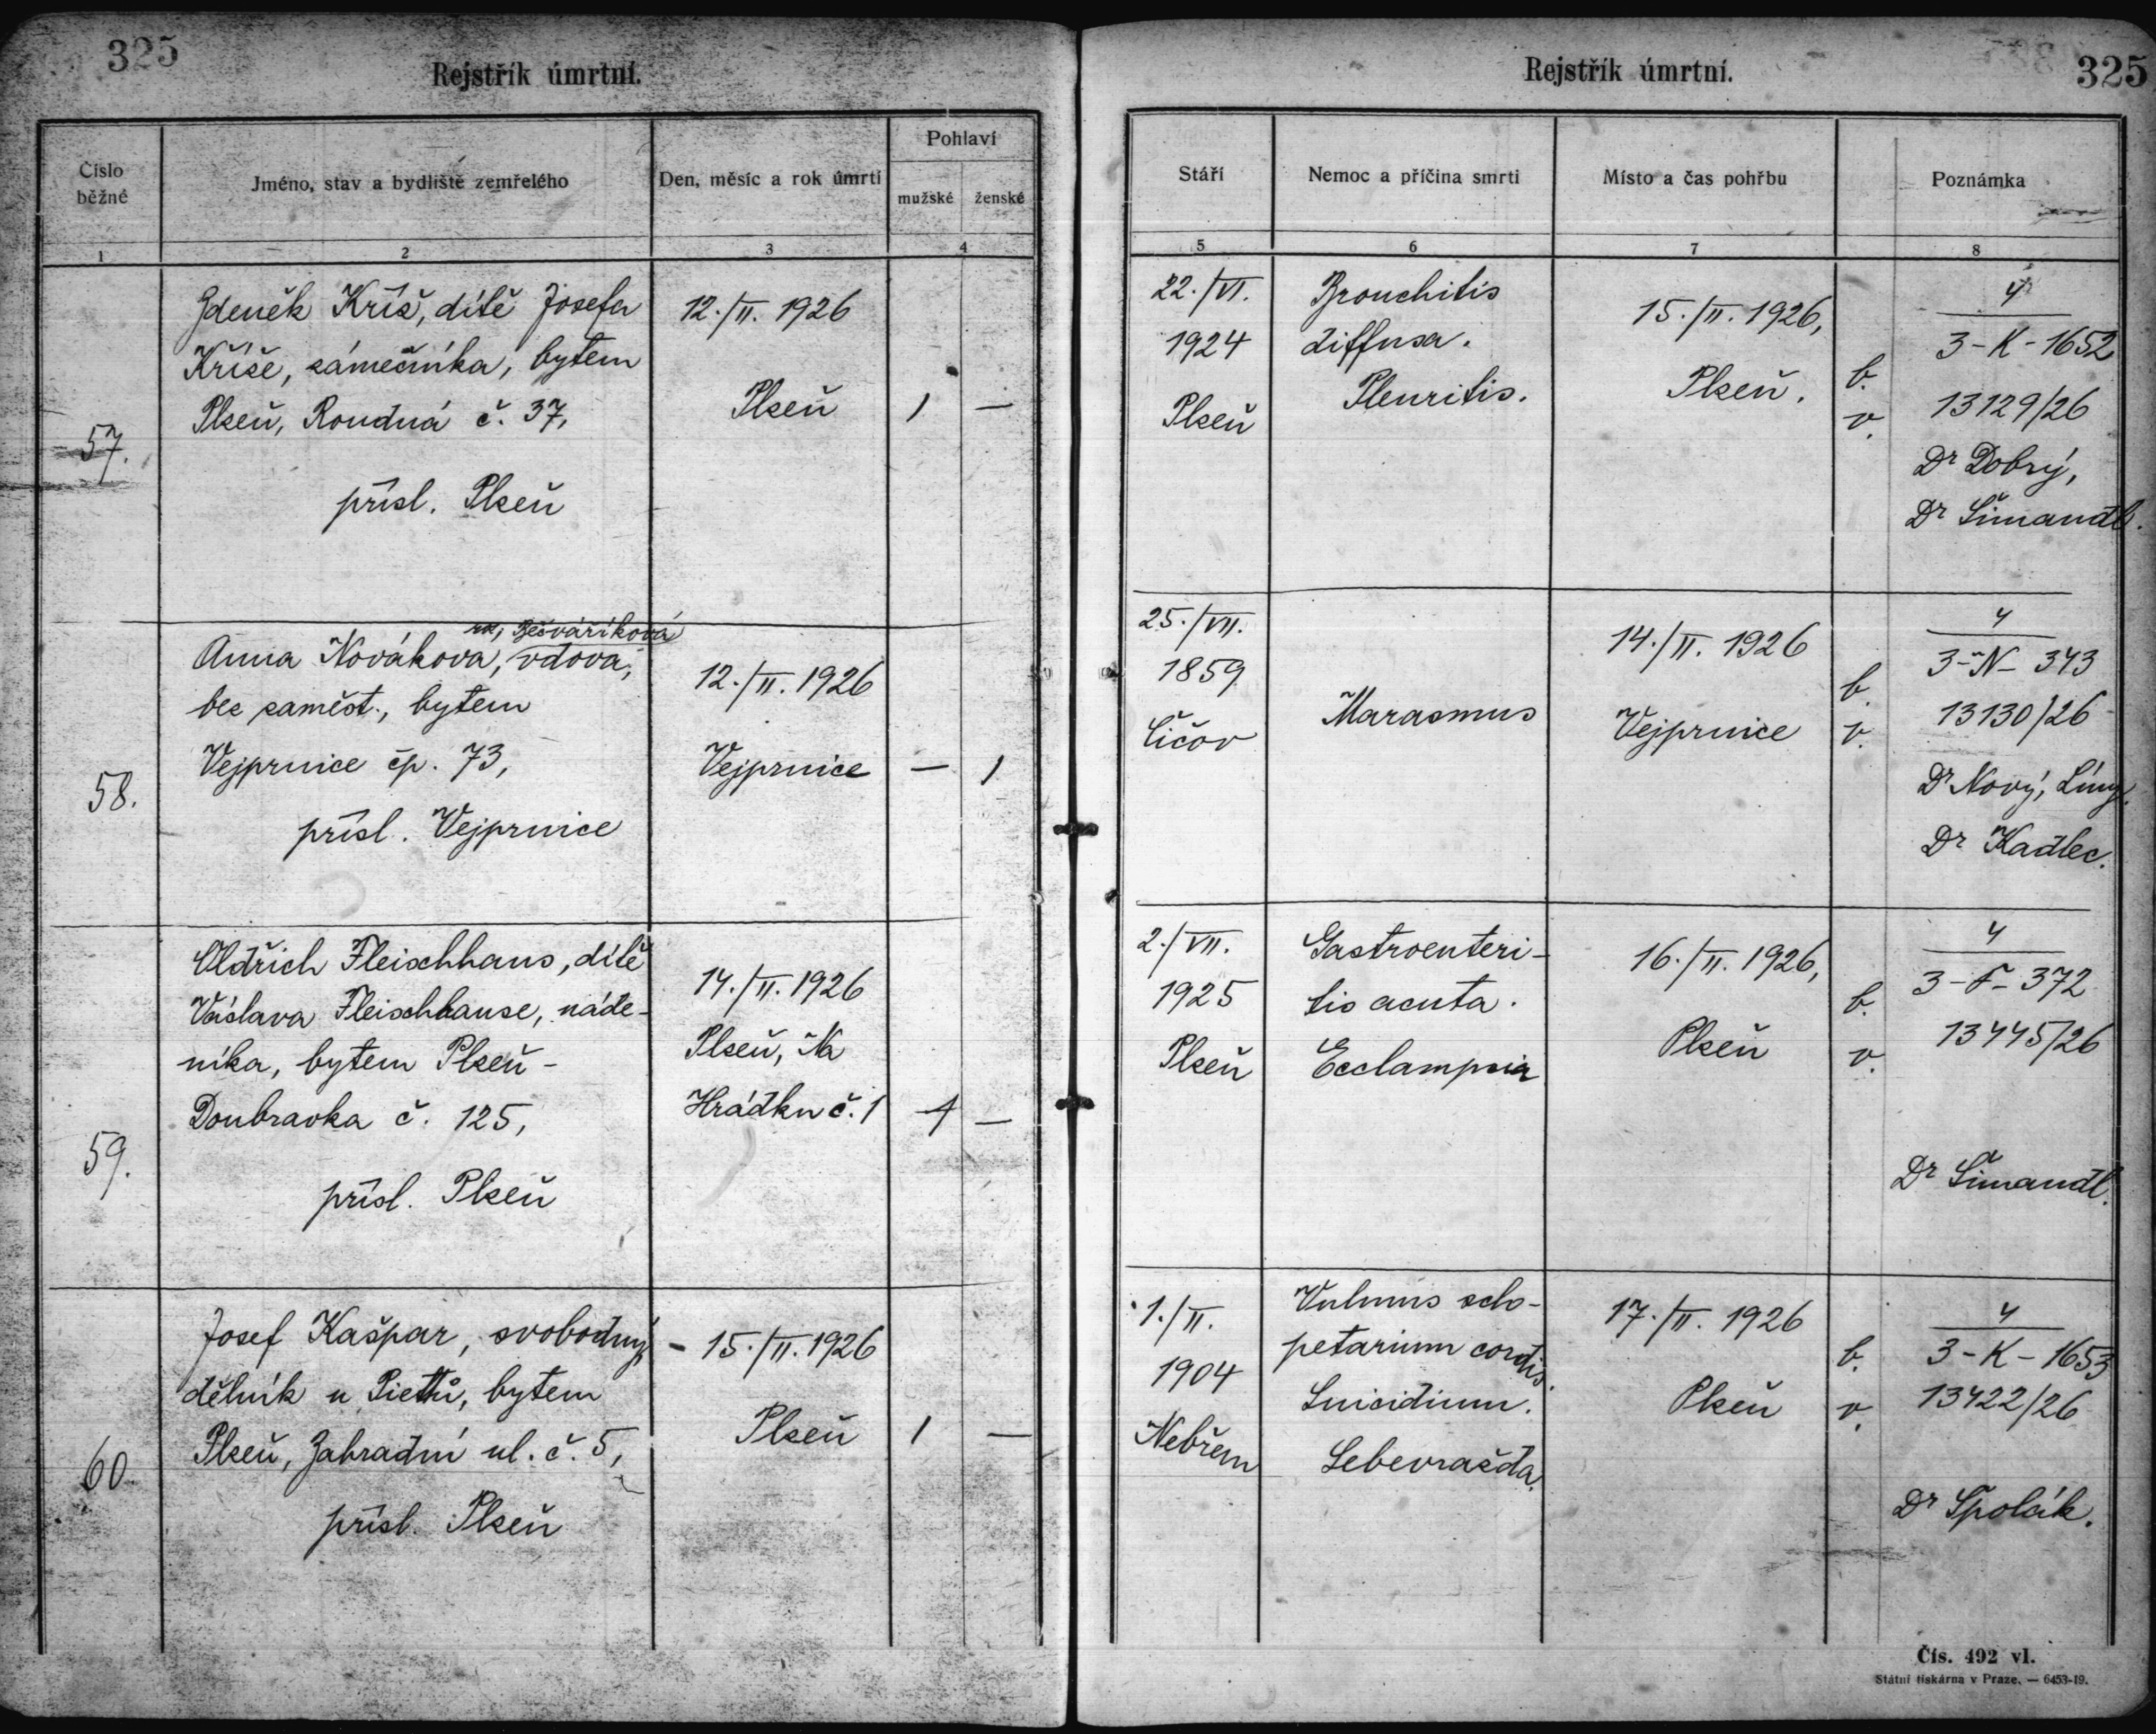 325
Rejstřík úmrtní.
Číslo běžné
Jméno, stav a bydliště zemřelého
Den, měsíc a rok úmrtí
Pohlaví
mužské
ženské
1
2
3
4
57.
Zdeněk Kříš, dítě Josefa
Kříše, zámečníka, bytem
Plzeň, Roudná č. 37,
přísl. Plzeň
12./II. 1926
Plzeň
1
—
58.
roz. Bešváříková
Anna Novákova, vdova,
bez zaměst., bytem
Vejprnice čp. 73,
přísl. Vejprnice
12./II. 1926
Vejprnice
—
1
59.
Oldřich Fleischhans, dítě
Václava Fleischhanse, náde-
níka, bytem Plzeň-
Doubravka č. 125,
přísl. Plzeň
14./II. 1926
Plzeň, Na
Hrádku č. 1
1
—
60.
Josef Kašpar, svobodný,
dělník u Piettů, bytem
Plzeň, Zahradní ul. č. 5,
přísl. Plzeň
15./II. 1926
Plzeň
1
—
Rejstřík úmrtní.
325
Stáří
Nemoc a příčina smrti
Místo a čas pohřbu
Poznámka
5
6
7
8
22./VI.
1924
Plzeň
Bronchitis
diffusa.
Pleuritis.
15./II. 1926,
Plzeň.
b.
v.
4
3-K-1652
13129/26
Dr Dobrý,
Dr Šimandl.
25./VII.
1859
Čičov
Marasmus
14./II. 1926
Vejprnice
b.
v.
4
3-N-343
13130/26
Dr Nový, Líny.
Dr Kadlec.
2./VII.
1925
Plzeň
Gastroenteri-
tis acuta.
Ecclampsia
16./II. 1926,
Plzeň
b.
v.
4
3-F-372
13445/26
Dr Šimandl.
1./II.
1904
Nebřem
Vulnus sclo-
petarium cordis.
Suicidium.
Sebevražda.
17./II. 1926
Plzeň
b.
v.
4
3-K-1653
13422/26
Dr Špolák.
Čís. 492 vl.
Státní tiskárna v Praze. — 6453-19.